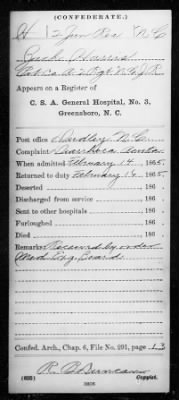 (CONFEDERATE.)
H 2 Jun Res N C
Harris
Pvt Co. A. 2 Regt. N.C. J.R.
Appears on a Register
of
C. S. A. General Hospital, No. 3,
Greensboro, N. C.
Post office Yardley N.C.
Complaint Diarrhoea
When admitted February 14, 1865.
Returned to duty February 16, 1865.
Deserted , 186 .
Discharged from service , 186 .
Sent to other hospitals , 186 .
Furloughed , 186 .
Died , 186 .
Remarks Received by order
Med. Exg. Board
Confed. Arch., Chap. 6, File No. 291, page 13
R. B. Duncan
(635) Copyist.